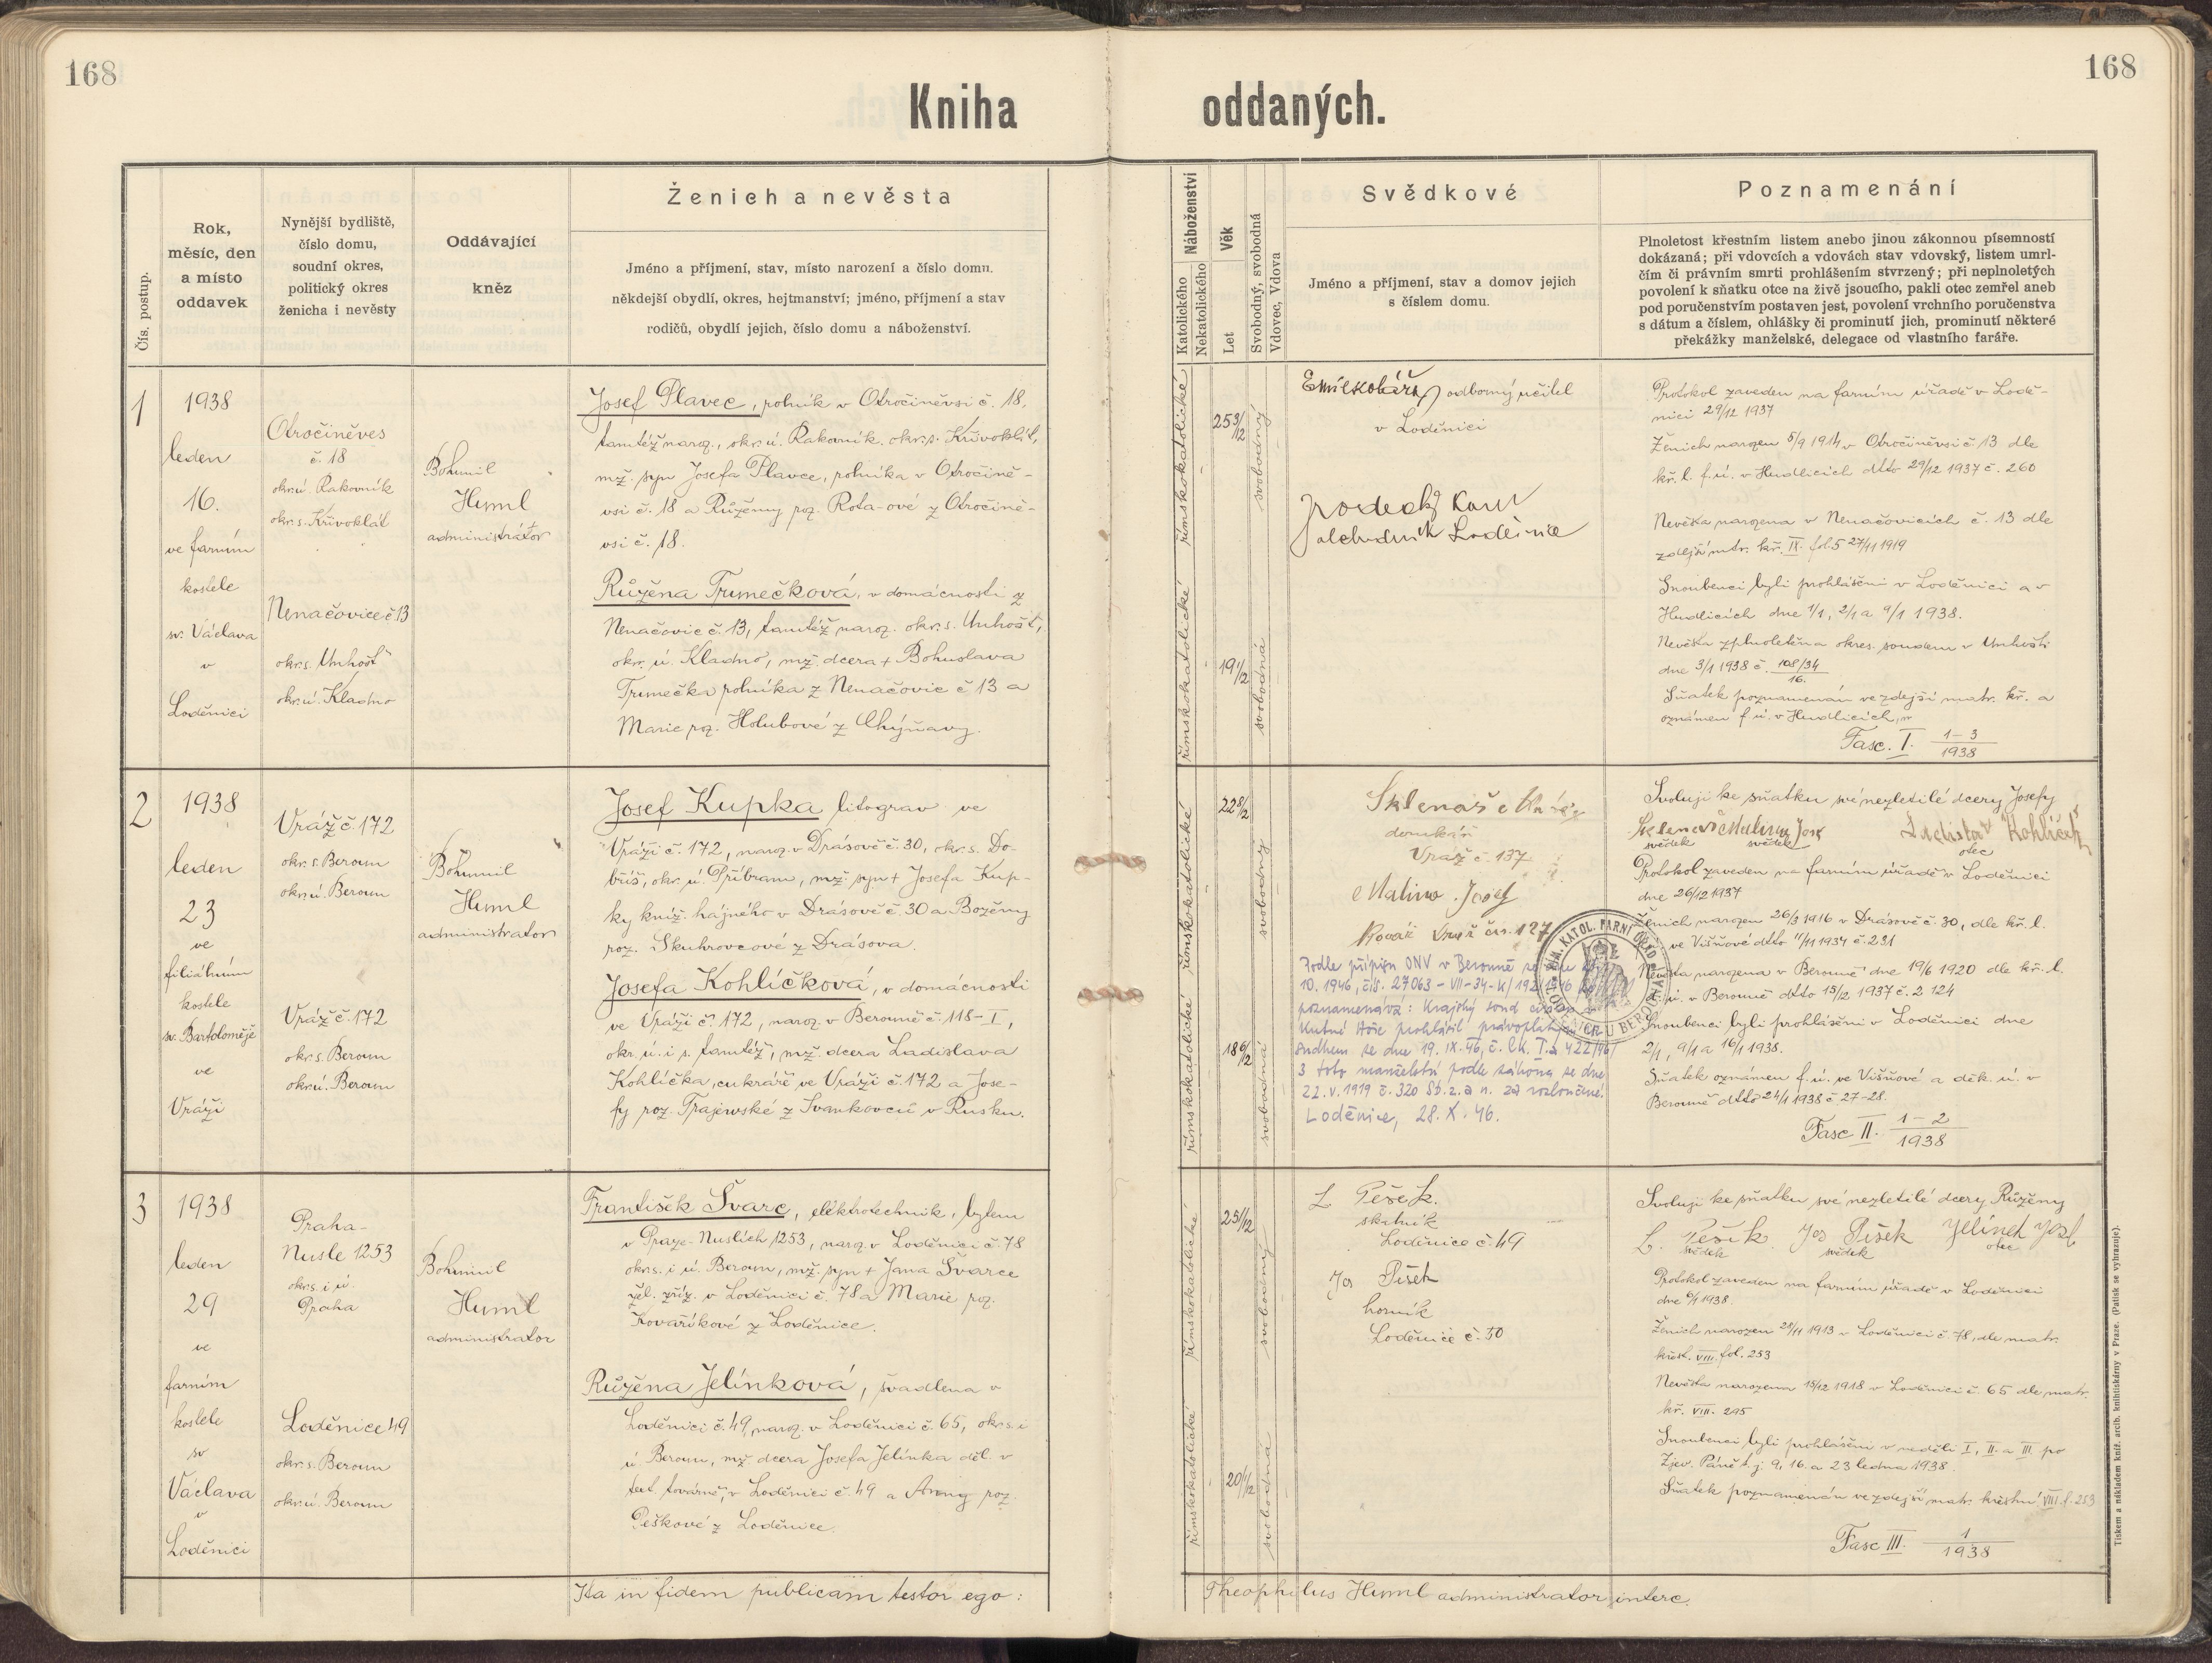 168
168
Kniha oddaných.
Čís. postup.
Rok,
měsíc, den
a místo
oddavek
Nynější bydliště,
číslo domu,
soudní okres,
politický okres
ženicha i nevěsty
Oddávající
kněz
Ženich a nevěsta
Jméno a příjmení, stav, místo narození a číslo domu.
někdejší obydlí, okres, hejtmanství; jméno, příjmení a stav
rodičů, obydlí jejich, číslo domu a náboženství.
Náboženství
Katolického
Nekatolického
Věk
Let
Svobodný, svobodná
Vdovec, Vdova
Svědkové
Jméno a příjmení, stav a domov jejich
s číslem domu.
Poznamenání
Plnoletost křestním listem anebo jinou zákonnou písemností
dokázaná; při vdovcích a vdovách stav vdovský, listem umrl-
čím či právním smrti prohlášením stvrzený; při neplnoletých
povolení k sňatku otce na živě jsoucího, pakli otec zemřel aneb
pod poručenstvím postaven jest, povolení vrchního poručenstva
s dátum a číslem, ohlášky či prominutí jich, prominutí některé
překážky manželské, delegace od vlastního faráře.
1
1938
leden
16.
ve farním
kostele
sv. Václava
v
Loděnici
Otročiněves
č. 18
okr. ú. Rakovník
okr. s. Křivoklát
Nenačovice č 13
okr. s. Unhošť
okr. ú. Kladno
Bohumil
Huml
administrátor
Josef Plavec, rolník v Otročiněvsi č. 18,
tamtéž naroz., okr. ú. Rakovník. okr. s. Křivoklát,
mž. syn Josefa Plavce, rolníka v Otročině-
vsi č. 18 a Růženy roz. Rota-ové z Otročině-
vsi č. 18.
Růžena Trunečková, v domácnosti z
Nenačovic č. 13, tamtéž naroz. okr. s. Unhošť,
okr. ú. Kladno, mž. dcera + Bohuslava
Trunečka rolníka z Nenačovic č 13 a
Marie roz. Holubové z Chýňavy.
římskokatolické
římskokatolické
25 3/12
19 1/12
svobodný
svobodná
Emil Kolář, odborný učitel
v Loděnici
Karel
obchodník Loděnice
Protokol zaveden na farním úřadě v Lodě-
nici 29/12 1937
Ženich narozen 5/9 1914 v Otročiněvsi č. 13 dle
kř. l. f. ú. v Hudlicích dtto 29/12 1937 č. 260
Nevěsta narozena v Nenačovicích č. 13 dle
zdejší mtr. kř. IX. fol. 5 27/11 1919
Snoubenci byli prohlášeni v Loděnici a v
Hudlicích dne 1/1, 2/1 a 9/1 1938.
Nevěsta zplnoletěna okres. soudem v Unhošti
dne 3/1 1938 č. 108/34
16.
Sňatek poznamenán ve zdejší matr. kř. a
oznámen f. ú. v Hudlicích,
Fasc. I. 1-3
1938
2
1938
leden
23
ve
filiálním
kostele
sv. Bartoloměje
ve
Vráži
Vráž č. 172
okr. s. Beroun
okr. ú. Beroun
Vráž č. 172
okr. s. Beroun
okr. ú. Beroun
Bohumil
Huml
administrator
Josef Kupka litograv ve
Vráži č. 172, naroz. v Drásově č. 30, okr. s. Do-
bříš, okr. ú. Příbram, mž. syn + Josefa Kup-
ky kníž. hajného v Drásově č. 30 a Boženy
roz. Skuhrovcové z Drásova.
Josefa Kohlíčková, v domácnosti
ve Vráži č. 172, naroz. v Berouně č. 118-I,
okr. ú. i s. tamtéž, mž. dcera Ladislava
Kohlíčka, cukráře ve Vráži č. 172 a Jose-
fy roz. Trajewské z Ivankovců v Rusku.
římskokatolické
římskokatolické
22 8/12
18 6/12
svobodný
svobodná
Sklenář
domkář
Vráž č. 137
Malina Josef
Kovář Vráž čís. 127
Podle přípisu ONV v Berouně ze dne
10. 1946, čís. 27063-VII-34-K/192/1946 se
poznamenává: Krajský soud civ.
Kutné Hoře prohlásil právoplatným
sudkem ze dne 19. IX. 46, č. Ck. I.a 422/46
3 toto manželství podle zákona ze dne
22. V. 1919 č. 320 Sb. z. a n. za rozloučené.
Loděnice, 28. X. 46.
ŘÍM. KATOL. FARNÍ ÚŘAD
LODĚNICE U BEROUNA
Svoluji ke sňatku své nezletilé dcery Josefy
Sklenář Malina Josef Ladislav Kohlíček
svědek svědek otec
Protokol zaveden na farním úřadě v Loděnici
dne 26/12 1937
Ženich narozen 26/3 1916 v Drásově č. 30, dle kř. l.
ve Višňové dtto 11/11 1934 č. 231
Nevěsta narozena v Berouně dne 19/6 1920 dle kř. l.
d. ú. v Berouně dtto 15/12 1937 č. 2124
Snoubenci byli prohlášeni v Loděnici dne
2/1, 9/1 a 16/1 1938.
Sňatek oznámen f. ú. ve Višňové a děk. ú. v
Berouně dtto 24/1 1938 č. 27-28.
Fasc II. 1-2
1938
3
1938
leden
29
ve
farním
kostele
sv
Václava
v
Loděnici
Praha-
Nusle 1253
okr. s. i ú.
Praha
Loděnice 49
okr. s. Beroun
okr. ú. Beroun
Bohumil
Huml
administrator
František Švarc, elektrotechnik, bytem
v Praze-Nuslích 1253, naroz. v Loděnici č. 78
okr. s. i ú. Beroun, mž. syn + Jana Švarce
žel. zříz. v Loděnici č. 78 a Marie roz.
Kovaříkové z Loděnice.
Růžena Jelínková, švadlena v
Loděnici č. 49, naroz. v Loděnici č. 65, okr. s. i
ú. Beroun, mž. dcera Josefa Jelínka děl. v
text. továrně, v Loděnici č. 49 a Anny roz.
Peškové z Loděnice.
římskokatolické
římskokatolické
25 1/12
20 1/12
svobodný
svobodná
L Pešek.
skelník
Loděnice č. 49
Jos Pišek
horník
Loděnice č. 50
Svoluji ke sňatku své nezletilé dcery Růženy
L. Pešek Jos Pišek Jelínek Josef
svědek svědek otec
Protokol zaveden na farním úřadě v Loděnici
dne 6/1 1938.
Ženich narozen 28/11 1913 v Loděnici č. 78, dle matr.
křest. VIII. fol. 253
Nevěsta narozena 15/12 1918 v Loděnici č. 65 dle matr.
kř. VIII. 295
Snoubenci byli prohlášeni v neděli I., II. a III. po
Zjev. Páně t. j. 9, 16. a 23 ledna 1938.
Sňatek poznamenán ve zdejší matr. křestní VIII. f. 253
Fasc III. 1
1938
Ita in fidem publicam testor ego: Theophilus Huml administrator interc.
Tiskem a nákladem kníž. arcib. knihtiskárny v Praze. (Patisk se vyhrazuje).